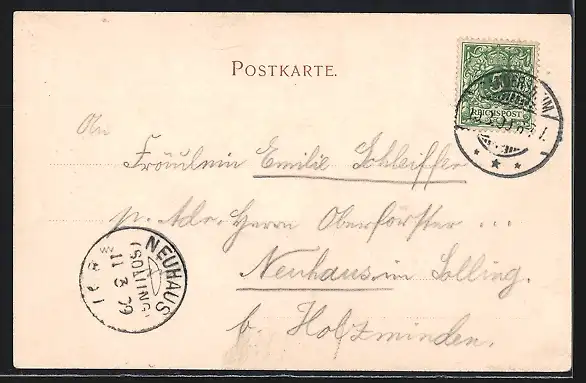 POSTKARTE.
5
REICHSPOST
An
Fräulein Emilie Schleiffer
p. Adr. Herrn Oberförster ...
Neuhaus im Solling.
b. Holzminden.
NEUHAUS
(SOLLING)
11 3 99